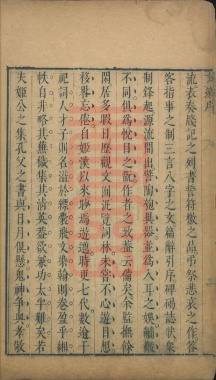 流表奏牋記之列書誓符檄之品弔祭悲哀之作答
客指事之制三言八字之文篇辭引序碑碣誌狀眾
制鋒起源流間出譬陶匏異器並為入耳之娛黼黻
不同俱為悅目之翫作者之致蓋云備矣余監撫餘
閑居多暇日歷觀文囿泛覽辭林未嘗不心遊目想
移晷忘倦自姬漢以來眇焉悠邈時更七代數逾千
祀詞人才子則名溢於縹囊飛文染翰則卷盈乎緗
帙自非略其蕪穢集其清英蓋欲兼功太半難矣若
夫姬公之籍孔父之書與日月俱懸鬼神爭奧孝敬